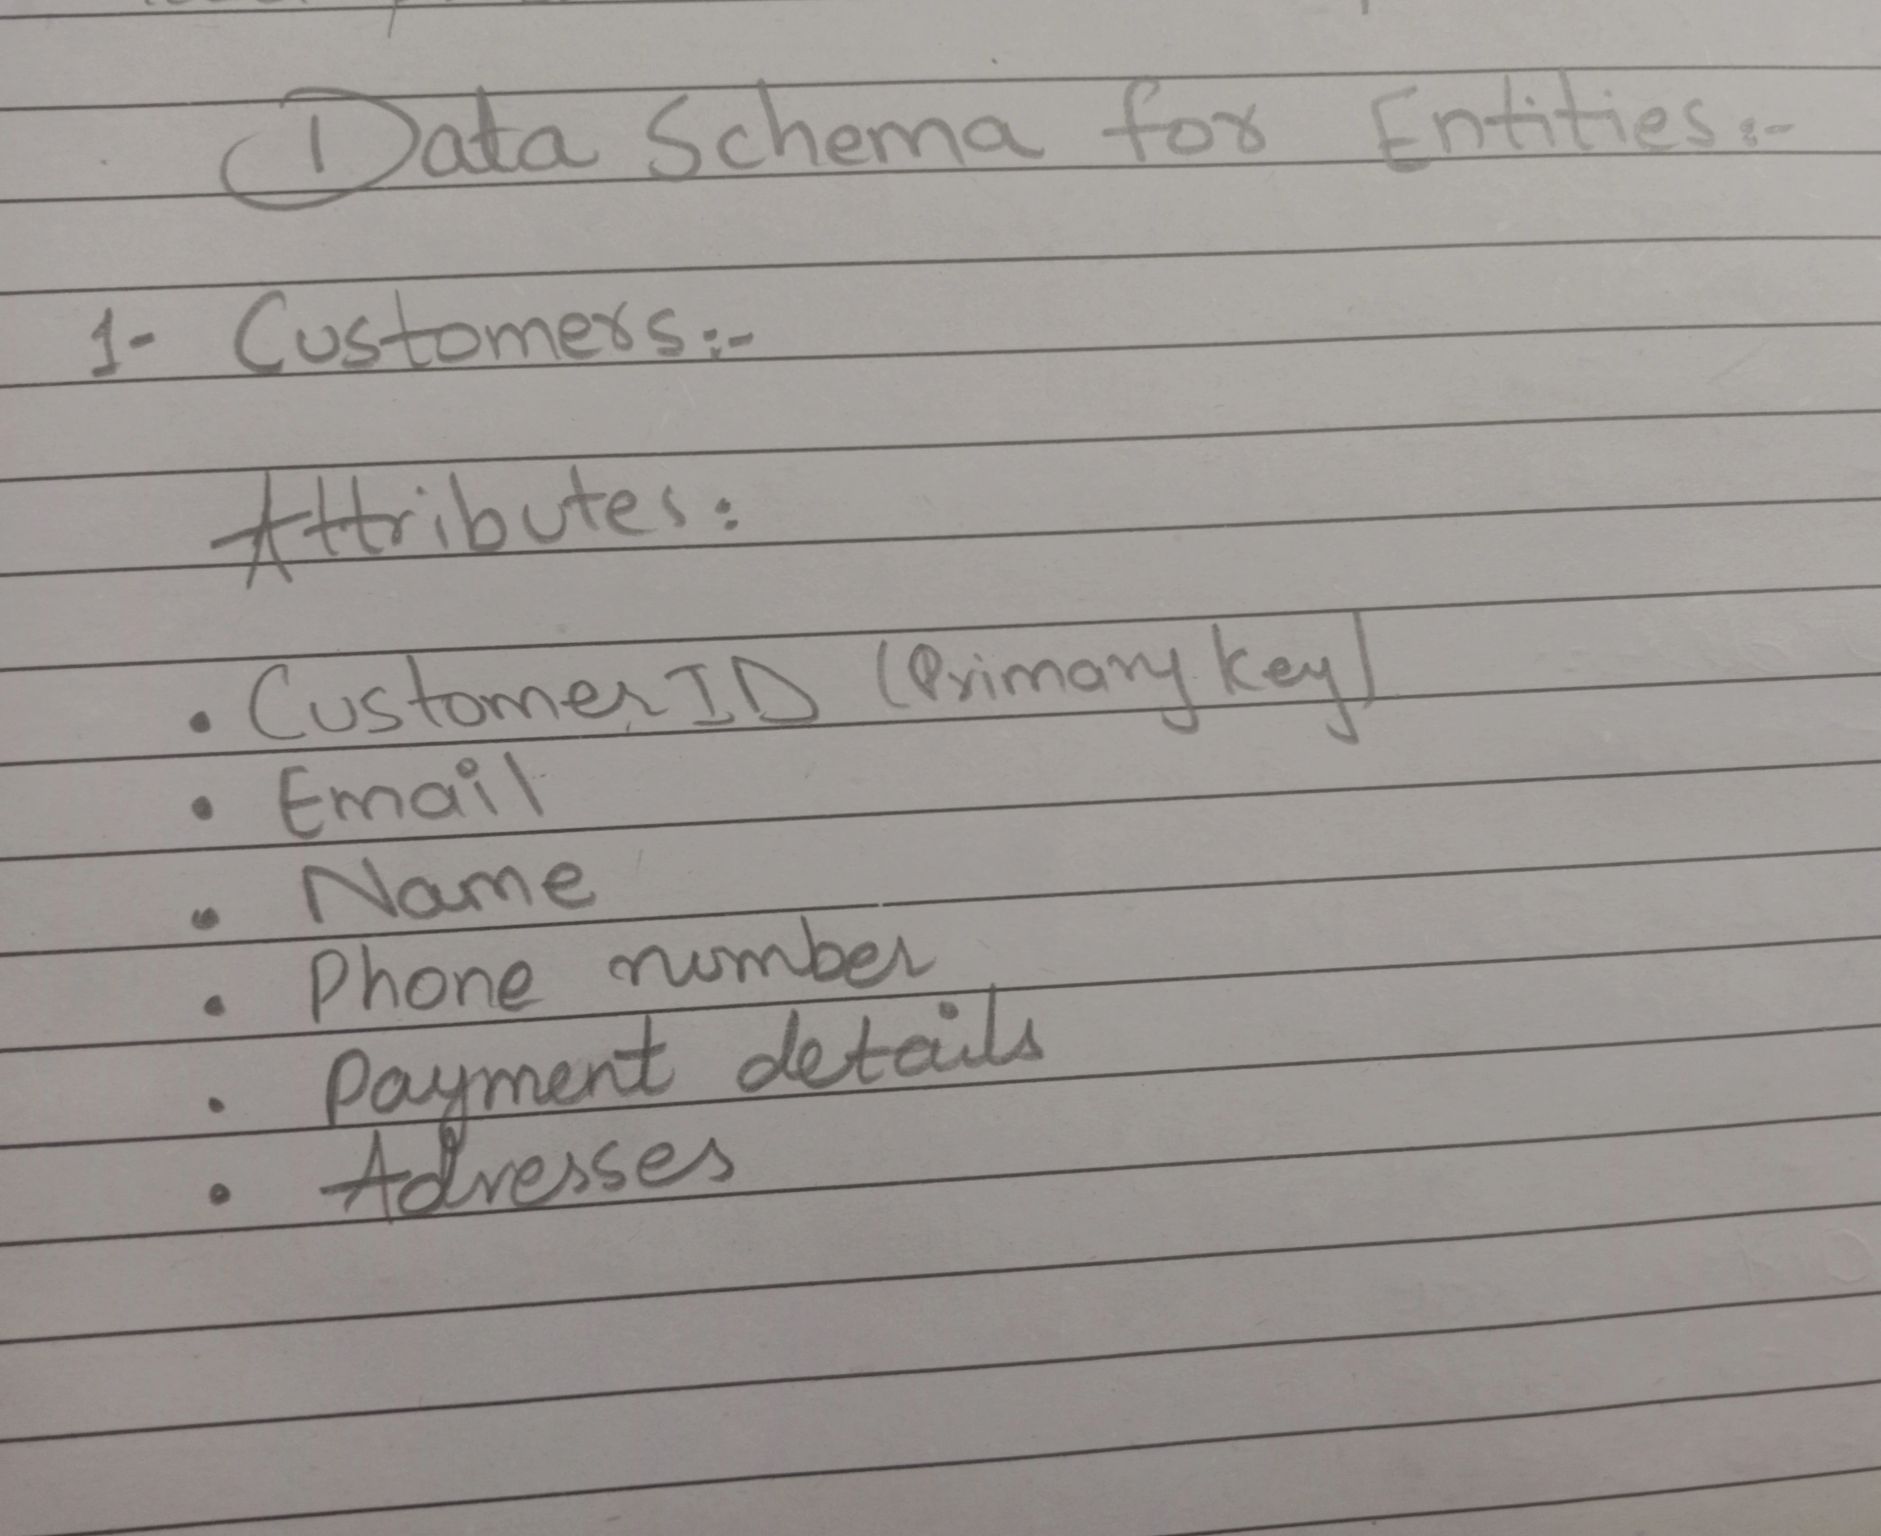 Data Schema for Entities:-
1- Customers:-
Attributes:
• Customer ID (Primary key)
• Email
• Name
• Phone number
• Payment details
• Adresses